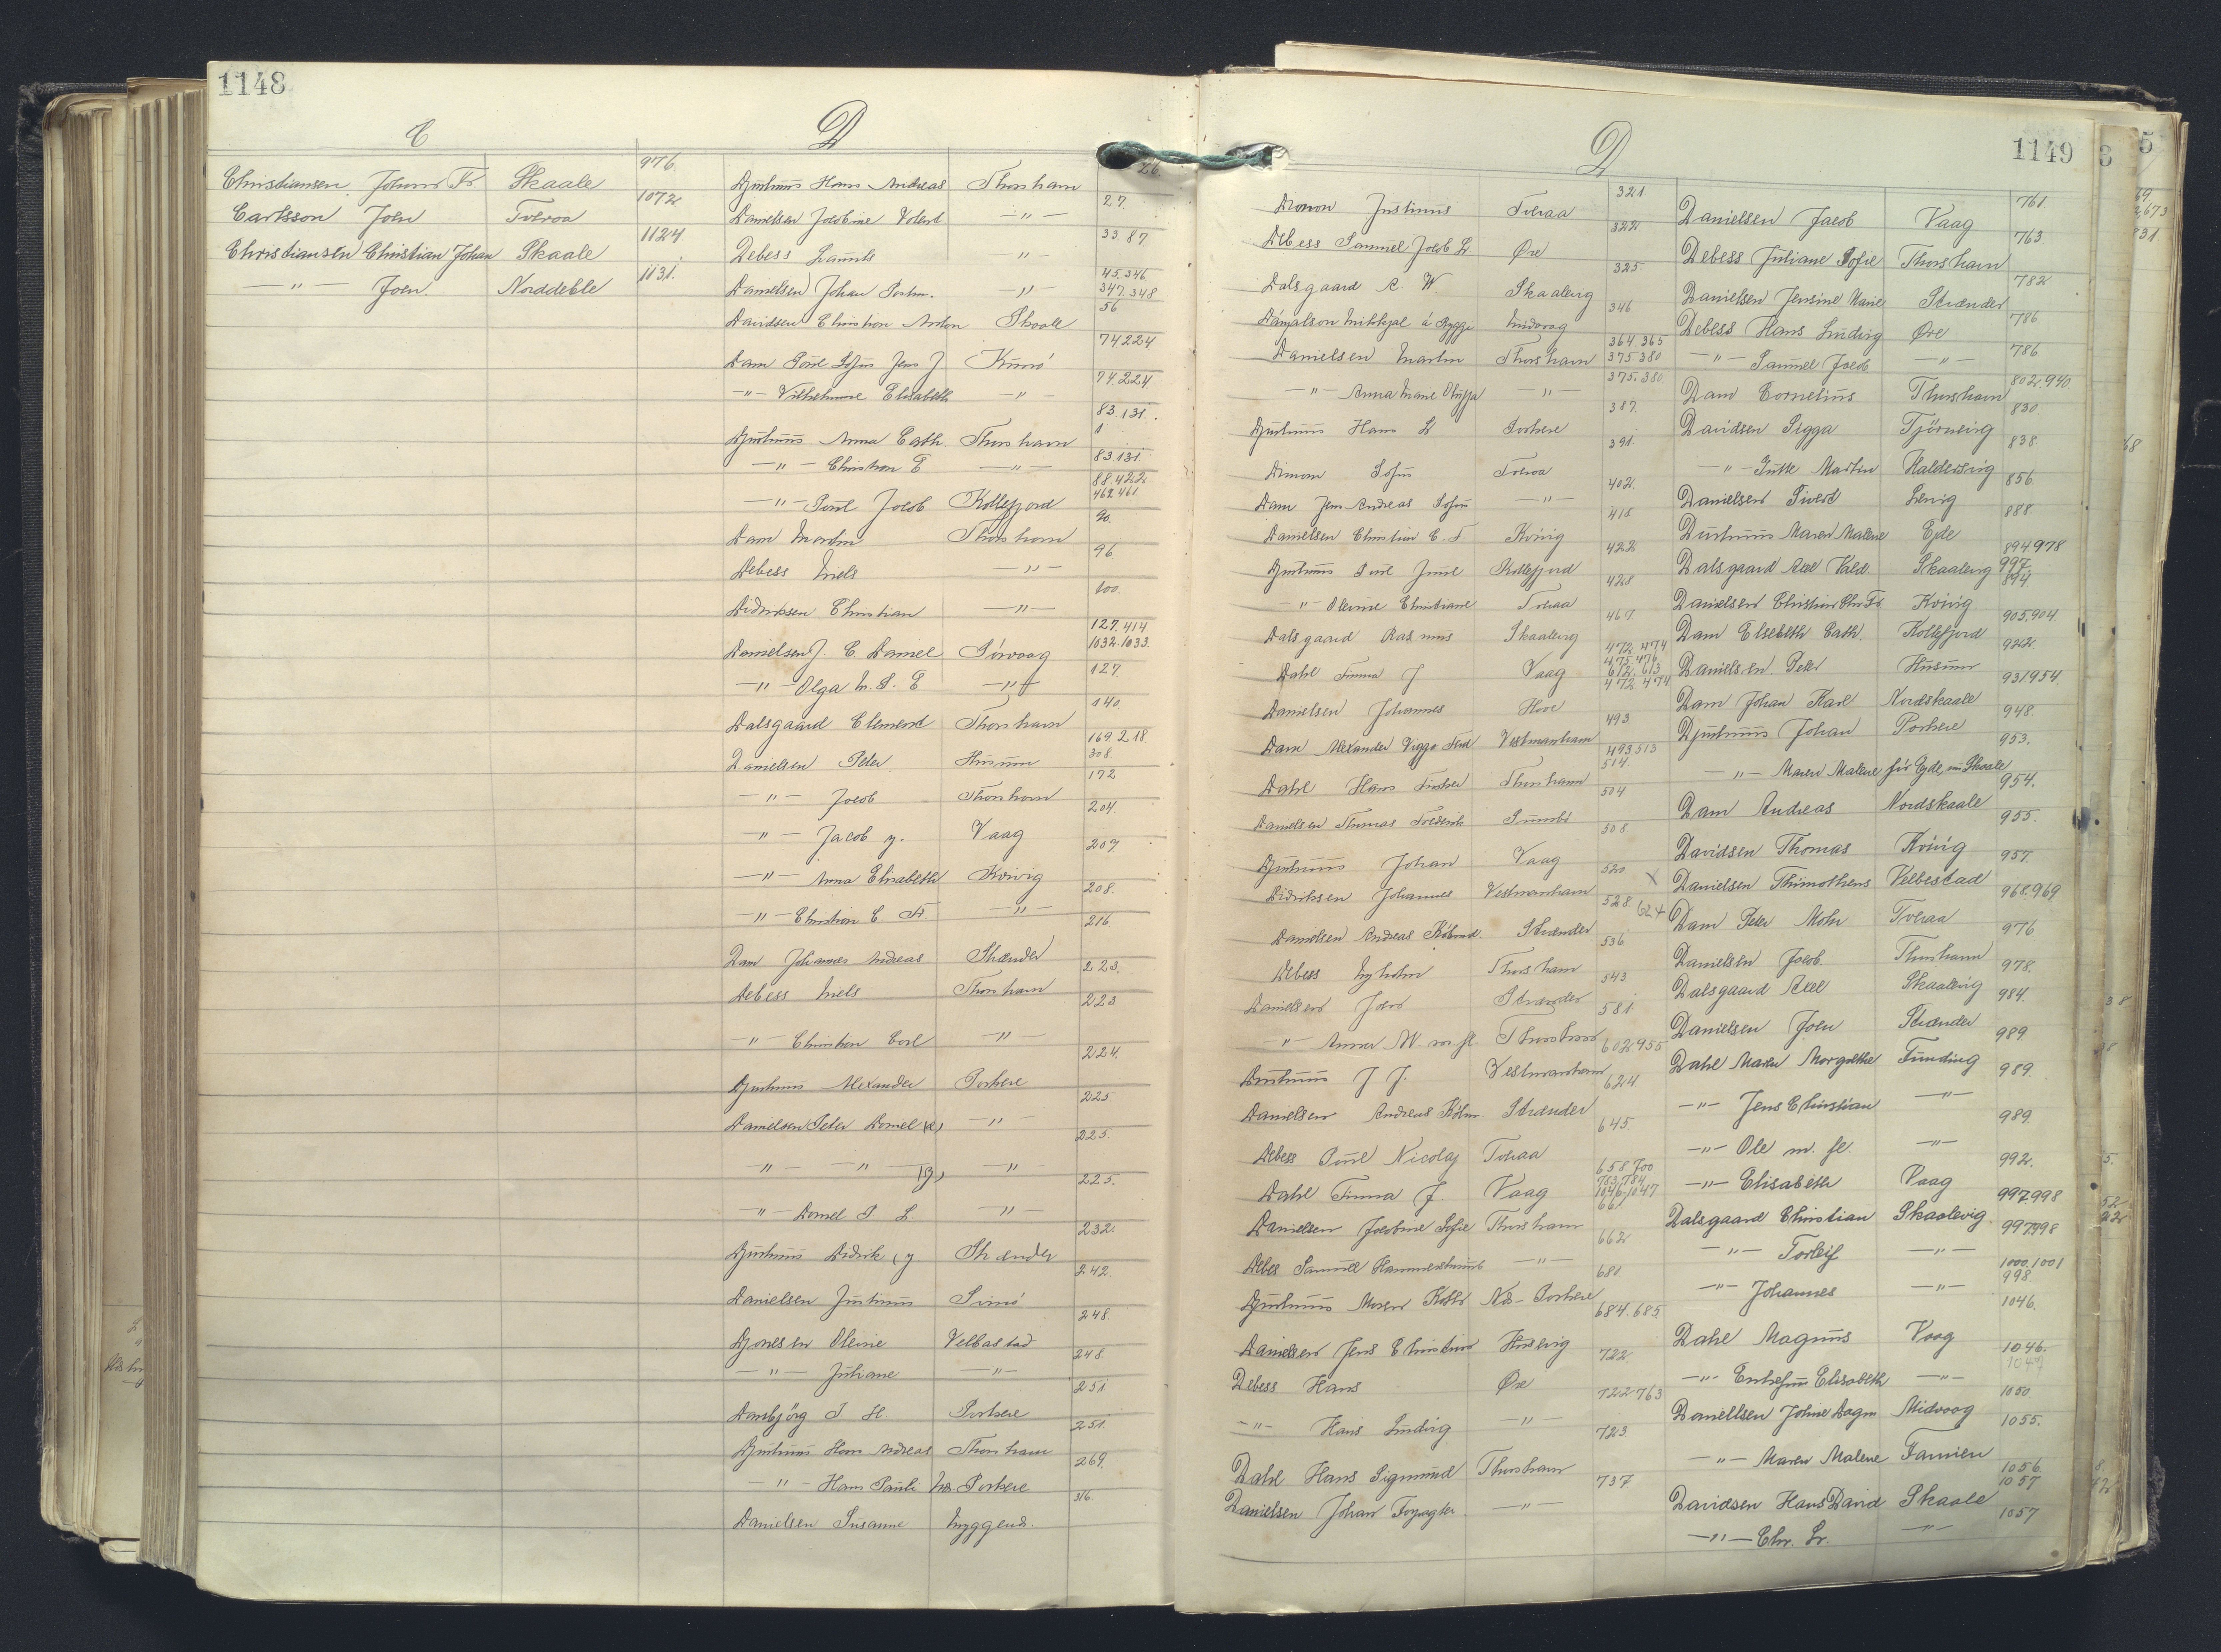 1148
C
Christiansen Johns Fr Skaale 976
Carlsson Joen Tveraa 1072
Christiansen Christian Johan Skaale 1124
—"— Joen. Norddeble 1131.
D
Djurhuus Hans Andreas Thorshavn 26.
Danielsen Jacobine Thorshavn 27.
Debess —"— 33. 87
Danielsen Johan —"— 45. 346 347. 348
Davidsen Christian Anton Skaale 56
Dam Poul Sofus Jens J. Kunö 74 224
—"— Vilhelmine Elisabeth —"— 74. 224
Djurhuus Anna Cath. Thorshavn 83. 131.
—"— Christian E —"— 83. 131.
—"— Poul Jacob Kollefjord 88. 422 462. 461
Dam Martin Thorshavn 90.
Debess Niels —"— 96
Didriksen Christian —"— 100.
Danielsen J. C. Daniel Sörvaag 127. 414 1032. 1033.
—"— Olga M. S. E —"— 127
Dalsgaard Clement Thorshavn 140
Danielsen Peter Husum 169. 218. 308
—"— Jacob Thorshavn 172
—"— Jacob y. Vaag 204.
—"— Anna Elisabeth Kvivig 207
—"— Christian C. Fr. —"— 208.
Dam Johannes Andreas Strænder 216
Debess Niels Thorshavn 223.
—"— Christian Carl —"— 223
Djurhuus Alexander Porkere 224.
Danielsen Peter Daniel —"— 225
—"— —"— —"— 225.
—"— Daniel J. L. —"— 225.
Djurhuus Didrik (y Strænder 232.
Danielsen Justinus Svinö 242.
Djonesen Oleine Velbastad 248.
—"— Juliane —"— 248.
Dansbjörg J. H. Porkere 251
Djurhuus Hans Andreas Thorshavn 251.
—"— Hans Pauli Nes Porkere 269.
Danielsen Susanne Myggenæs. 316.
1149
D
Dimon Justinus Tveraa 321
Debess Samuel Jacob L Öre 322
Dalsgaard A. W Skaalevig 325.
Dánjalson Mikkjal á Ryggi Midvaag 346
Danielsen Martin Thorshavn 364 365 375 380
—"— Anna Marie Olugga —"— 375. 380
Djurhuus Hans L Porkere 387.
Dimon Sofus Tveraa 391.
Dam Jens Andreas Sofus —"— 402.
Danielsen Christian C. F. Kvivig 418
Djurhuus Poul Juul Kollefjord 422
—"— Olevine Christiane Tveraa 428
Dalsgaard Rasmus Skaalevig 467
Dahl Tumma J Vaag 472. 474 475. 476 612. 613
Danielsen Johannes Hove 472 474
Dam Alexander Viggo Ferd Vestmanhavn 493
Dahl Hans Fischer Thorshavn 493 513 514
Danielsen Thomas Frederik Sumbö 504
Djurhuus Johan Vaag 508
Didriksen Johannes Vestmanhavn 520
Danielsen Andreas Kölmd. Strænder 528. 624
Debess Nyholm Thorshavn 536
Danielsen Joen Strænder 543
—"— Anna M m fl. Thorshavn 581
Djurhuus J J. Vestmanhavn 602. 955
Danielsen Andreas Kölm Strænder 624
Debess Poul Nicolaj Tveraa 645
Dahl Tumma J. Vaag 658. 700 783. 784 1046. 1047
Danielsen Jacobine Sofie Thorshavn 661
Debes Samuel Hammershaimb —"— 662
Djurhuus Maren Kathr Nes-Porkere 680
Danielsen Jens Christian Husevig 684. 685
Debess Hans Öre 722.
—"— Hans Ludvig —"— 722 763
Dahl Hans Sigmund Thorshavn 723
Danielsen Johan Fr —"— 737
Danielsen Jacob Vaag 761
Debess Juliane Sofie Thorshavn 763
Danielsen Jensine Marie Strænder 782
Debess Hans Ludvig Öre 786
—"— Samuel Jacob —"— 786
Dam Cornelius Thorshavn 802. 940
Davidsen Sigga Tjörnevig 830.
—"— Jutte Martin Haldersvig 838
Danielsen Sivert Lervig 856
Djurhuus Maren Malene Ejde 888.
Dalsgaard Axel Vald. Skaalevig 894 978 997
Danielsen Christian Chr Fr. Kvivig 894
Dam Elsebeth Cath. Kollefjord 905. 904
Danielsen Peter Husum 922.
Dam Johan Karl Nordskaale 931 954
Djurhuus Johan Porkere 948.
—"— Maren Malene för Ejde, nu Skaale 953.
Dam Andreas Nordskaale 954.
Davidsen Thomas Kvivig 955.
x Danielsen Thimotheus Velbestad 957.
Dam Peter Mohr Tveraa 968. 969
Danielsen Jacob Thorshavn 976
Dalsgaard Axel Skaalevig 978.
Danielsen Joen Strænder 984.
Dahl Maren Margrethe Funding 989
—"— Jens Christian —"— 989.
—"— Ole m. fl. —"— 989.
—"— Elisabeth Vaag 992.
Dalsgaard Christian Skaalevig 997. 998
—"— Torleif —"— 997. 998
—"— Johannes —"— 1000. 1001 998
Dahl Magnus Vaag 1046.
—"— Elisabeth —"— 1046. 1047
Daniellsen Johne Dagm Midvaag 1050
—"— Maren Malene Famien 1055.
Davidsen Hans David Skaale 1056. 1057
—"— Chr. Sr. —"— 1057